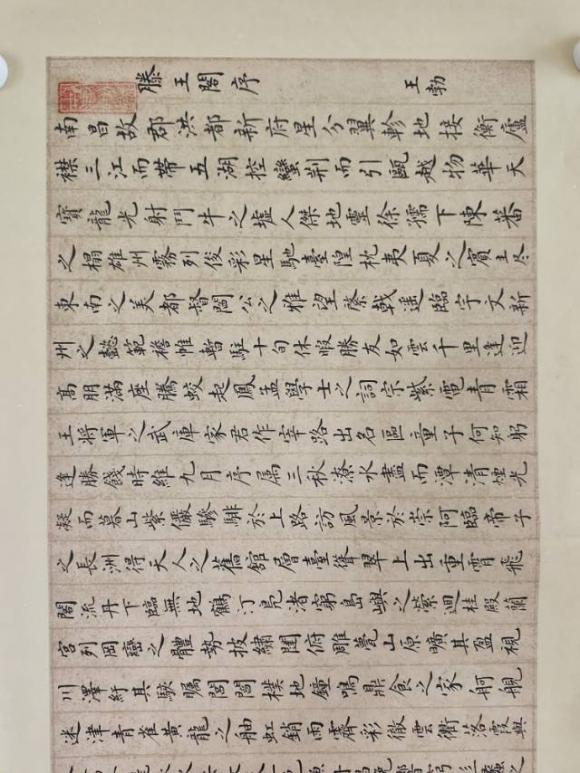 滕王閣序 王勃
南昌故郡洪都新府星分翼軫地接衡廬
襟三江而帶五湖控蠻荊而引甌越物華天
寶龍光射鬥牛之墟人傑地靈徐孺下陳蕃
之榻雄州霧列俊彩星馳臺隍枕夷夏之賓主尽
東南之美都督閻公之雅望棨戟遥臨宇文新
州之懿範襜帷暫駐十旬休暇勝友如雲千里逢迎
高朋滿座騰蛟起鳳孟學士之詞宗紫電青霜
王將軍之武庫家君作宰路出名區童子何知躬
逢勝餞時維九月序属三秋潦水盡而潭清煙光
凝而暮山紫儼驂騑於上路訪風景於崇阿臨帝子
之長洲得天人之舊館層臺聳翠上出重霄飛
閣流丹下臨無地鶴汀鳧渚窮島嶼之縈迴桂殿蘭
宮列岡巒之體勢披繡闥俯雕甍山原曠其盈視
川澤紆其駭矚閭閻撲地鐘鳴鼎食之家舸艦
迷津青雀黄龍之舳虹銷雨霽彩徹雲衢落霞與